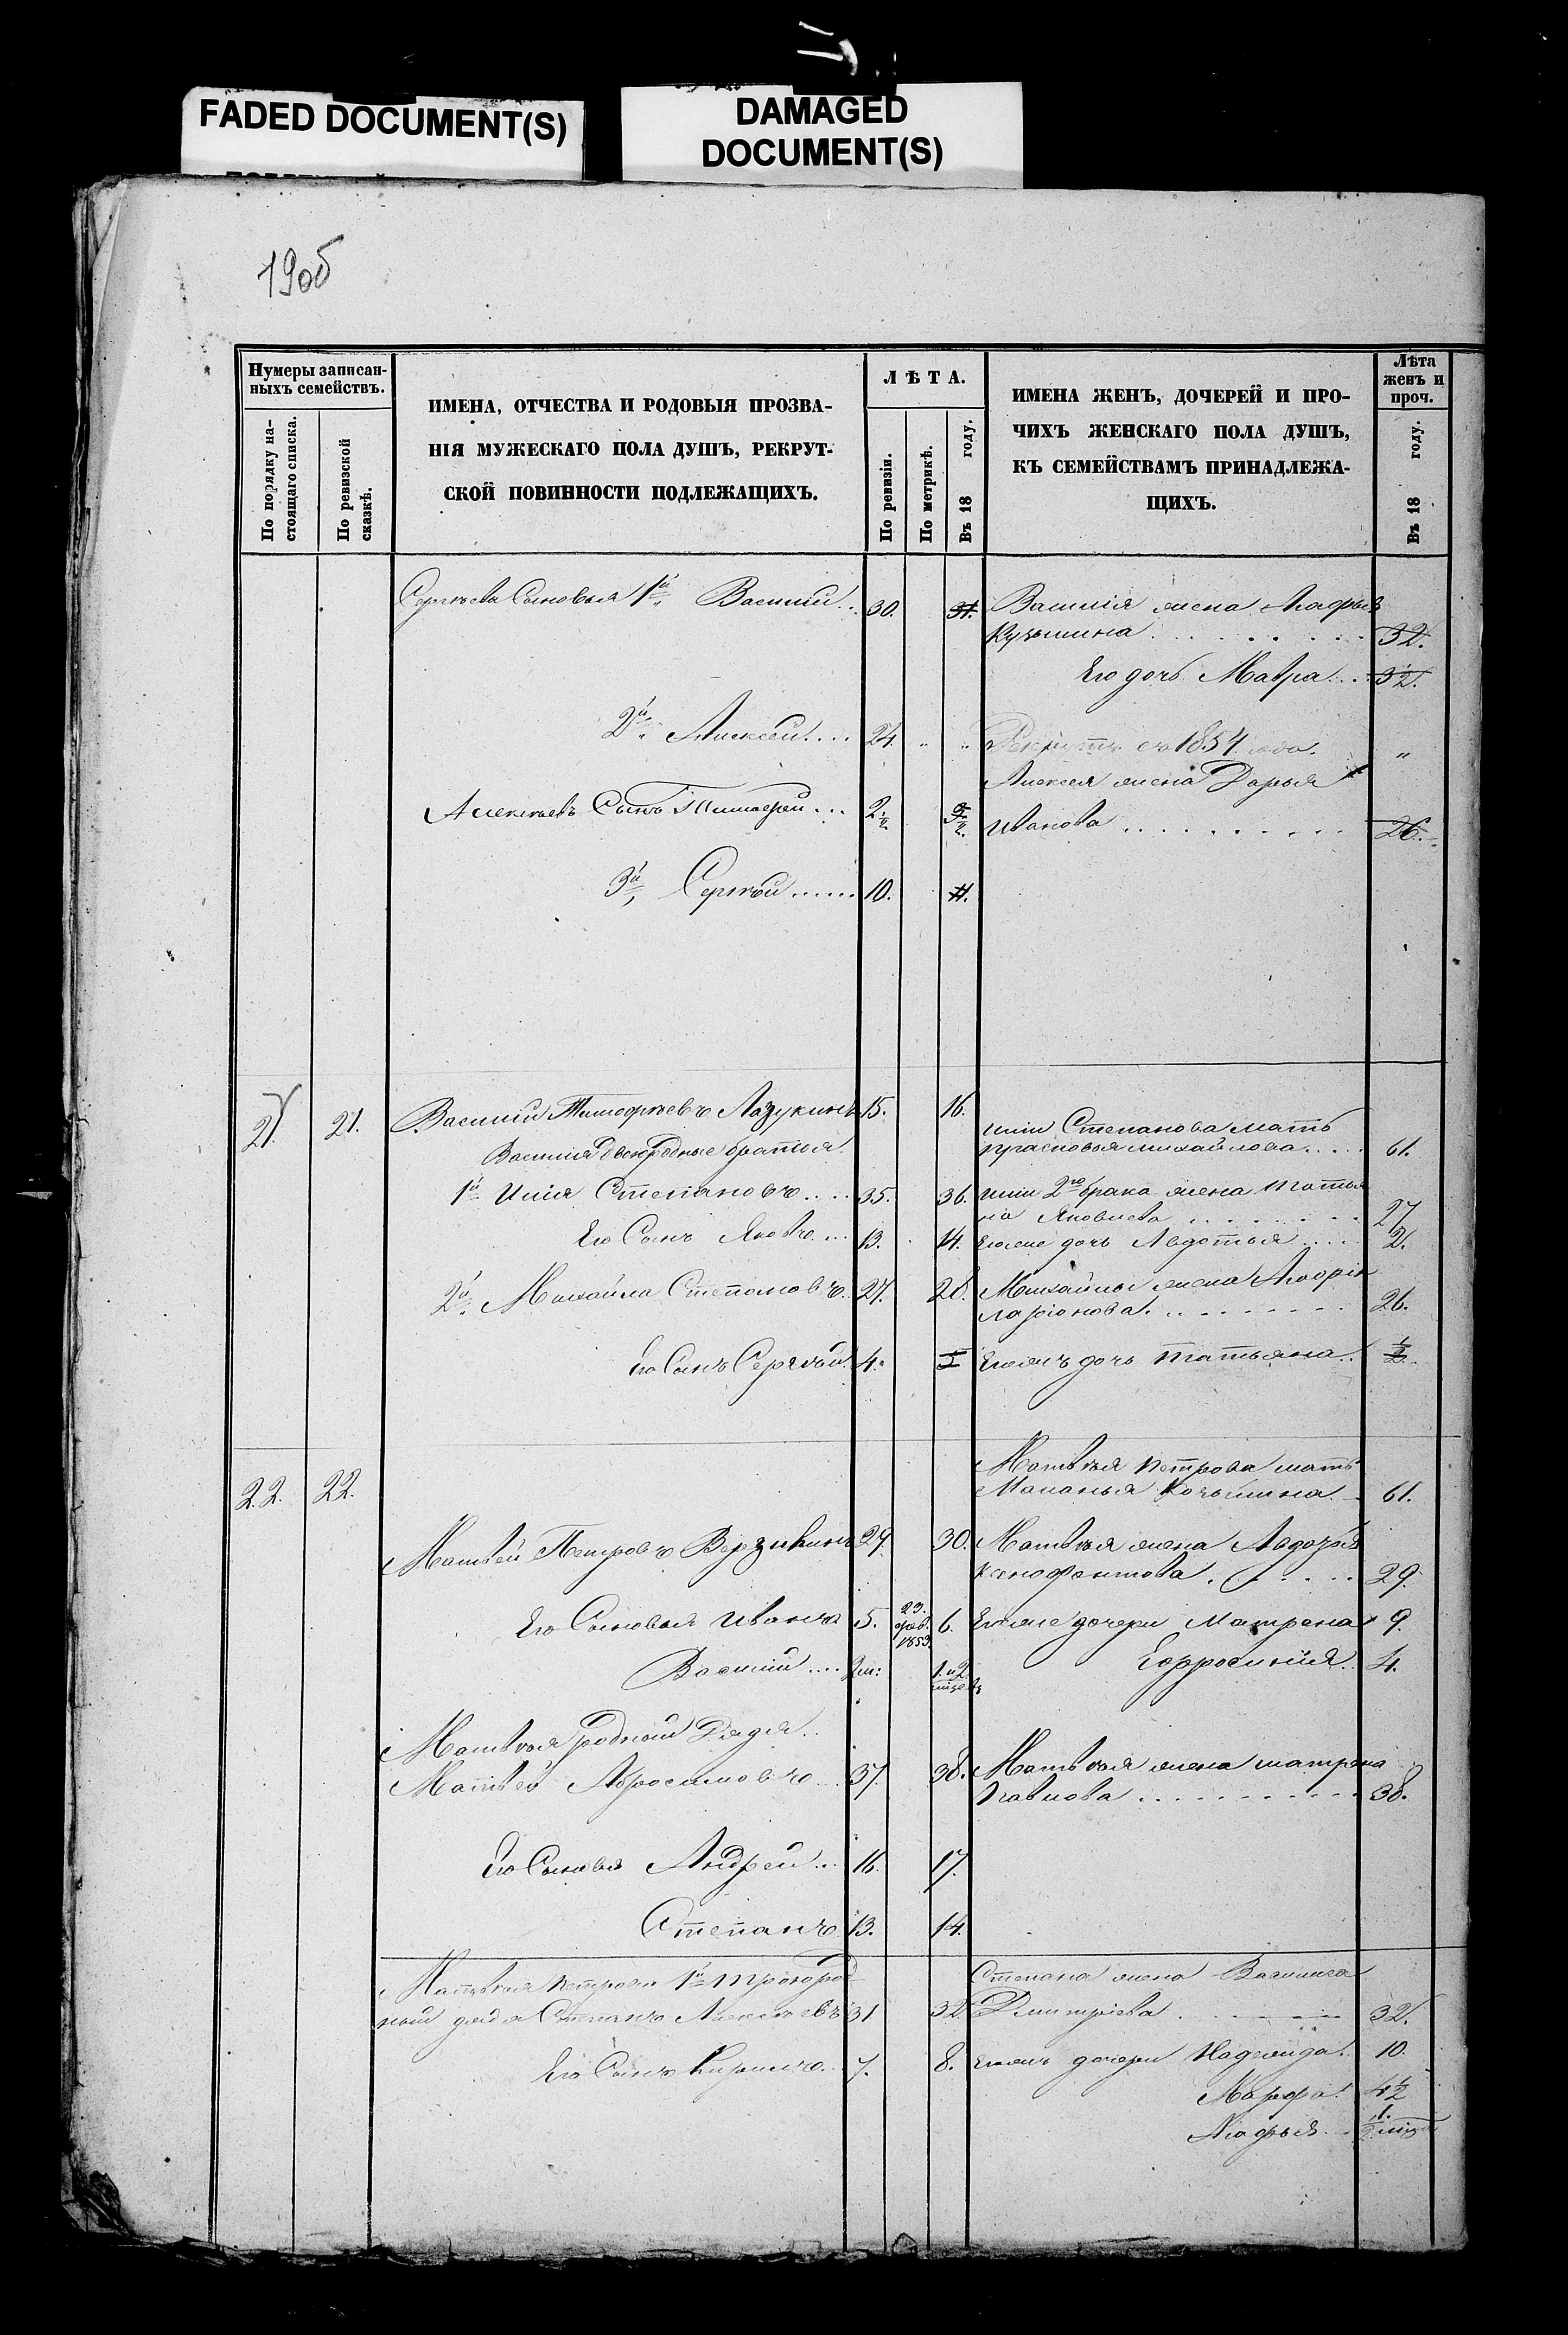 FADED DOCUMENT(S)
DAMAGED
DOCUMENT(S)
190б
Нумеры записан-
ныхъ семействъ.
По порядку на-
стоящаго списка.
По ревизской
сказкѣ.
ИМЕНА, ОТЧЕСТВА И РОДОВЫЯ ПРОЗВА-
НІЯ МУЖЕСКАГО ПОЛА ДУШЪ, РЕКРУТ-
СКОЙ ПОВИННОСТИ ПОДЛЕЖАЩИХЪ.
ЛѢТА.
По ревизіи.
По метрикѣ.
Въ 18 году.
ИМЕНА ЖЕНЪ, ДОЧЕРЕЙ И ПРО-
ЧИХЪ ЖЕНСКАГО ПОЛА ДУШЪ,
КЪ СЕМЕЙСТВАМЪ ПРИНАДЛЕЖА-
ЩИХЪ.
Лѣта
женъ и
проч.
Въ 18 году.
Сергѣева Сыновья 1й Василий .. 30. 31. Василія жена Агафья
Кузьмина 32.
Его дочь Мавра ... 3½.
2й Алексей .... 24. " " Рекрутъ съ 1854 года. "
Алексея жена Дарья
Алексѣевъ Сынъ Тимофей ... 2½ 3½ Иванова 26.
3й Сергѣй ...... 10. 11.
21. 21. Василий Тимофѣевъ Лазукинъ 15. 16.
Ильи Степанова мать
Василия Двоюродные братья Прасковья михайлова ..... 61.
1й Илья Степановъ .... 35. 36. Ильи 2го брака жена Татья
на Яковлева 27
Его Сынъ Яковъ ... 13. 14. Его же дочь Авдотья 2.
2й Михайла Степановъ. 27. 28. Михайлы жена
Ларіонова 26.
Его Сынъ Сергѣй. 4. дочь Татьяна .. ½.
22. 22. Матвѣя Петрова мать
Маланья Козьмина 61.
Матвѣй Петровъ 29. 30. Матвѣя жена Авдотья
Ксенофонтова 29.
Его Сыновья Иванъ 5. 23. фев. 1853. 6. Его же дочери Матрена 9.
Василий .... 1½ Ефросинія .. 4.
Матвѣя родной Дядя ..
Матвей Абросимовъ 37. 38. Матвѣя жена матрена
Павлова 38.
Его Сыновья Андрей ... 16. 17.
Степанъ 13. 14.
Матвѣя Петрова 1й троюрод Степана жена Василиса
ный дядя Степанъ Алексѣевъ 31 32. Дмитріева 32.
Его Сынъ Кирилъ .. 7. 8. дочери Надежда. 10.
Марфа. 4½
Агафья